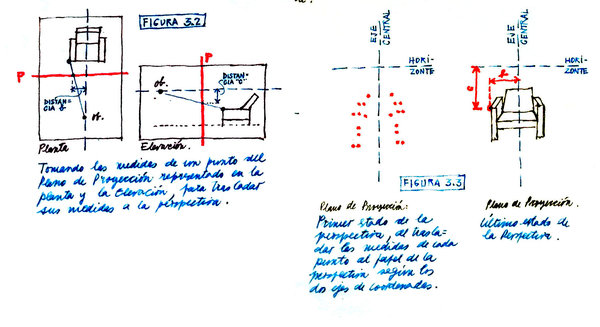 FIGURA 3.2
P
P
DISTAN-
CIA "b"
Planta
DISTAN-
CIA "a"
Elevación.
Tomando las medidas de un punto del
Plano de Proyección representado en la
planta y la Elevación, para trasladar
sus medidas a la perspectiva.
EJE
CENTRAL
HORI-
ZONTE
EJE
CENTRAL
HORI-
ZONTE
FIGURA 3.3
Plano de Proyección:
Primer estado de la
perspectiva, al trasla-
dar las medidas de cada
punto al papel de la
perspectiva según los
dos ejes de coordenadas.
Plano de Proyección.
Ultimo estado de
la Perspectiva.